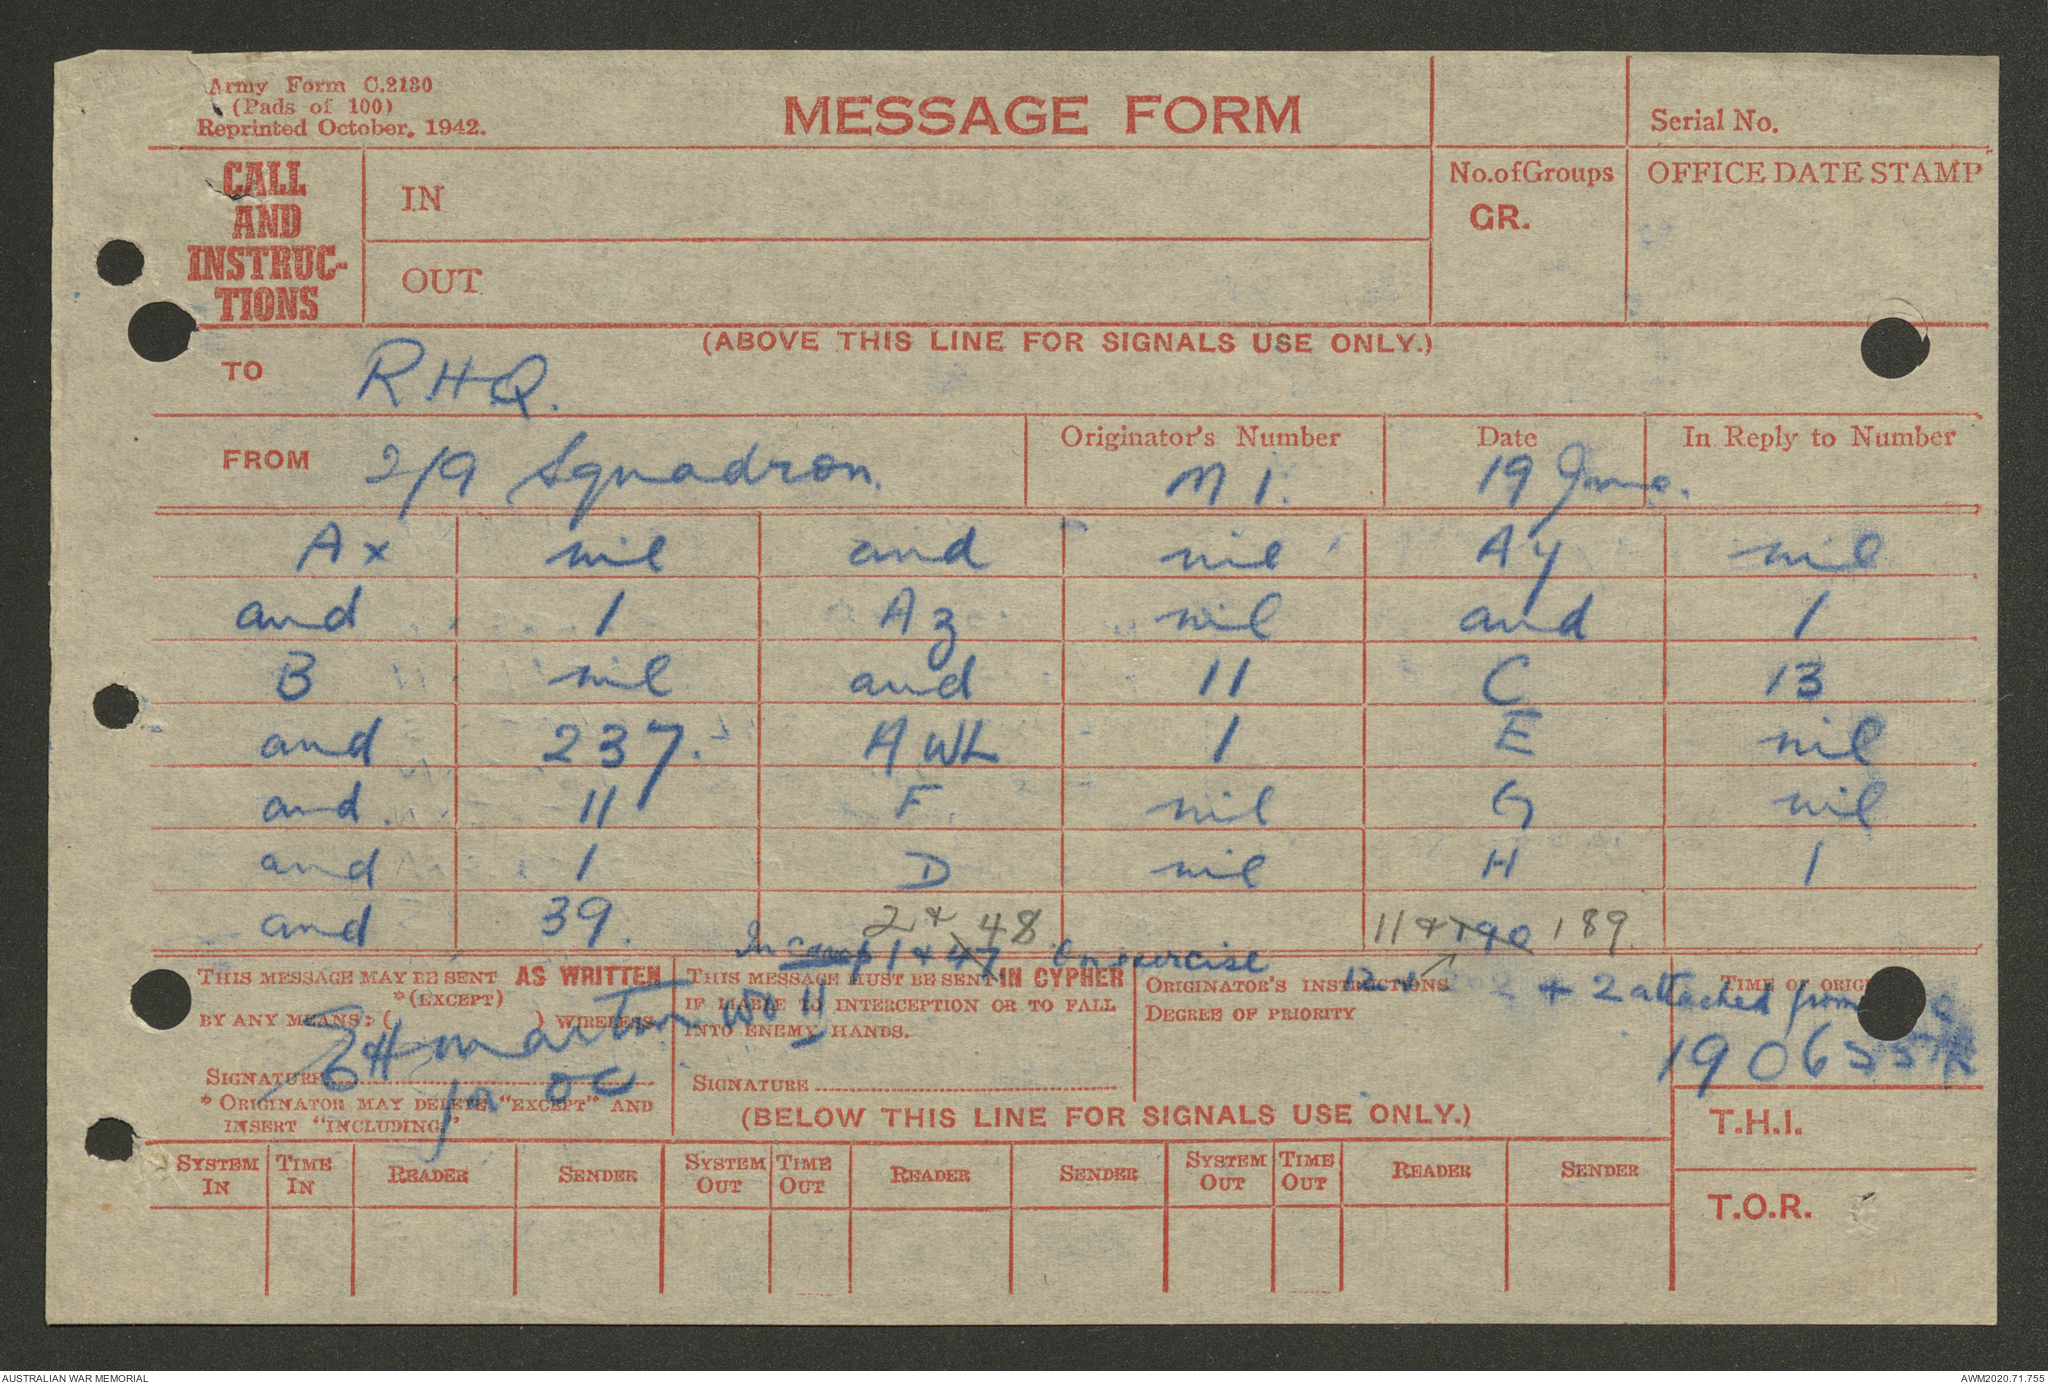 Army Form C.2130
(Pads of 100)
Reprinted October, 1942.
MESSAGE FORM
Serial No.
CALL AND INSTRUC-TIONS
IN
OUT
No. of Groups
GR.
OFFICE DATE STAMP
(ABOVE THIS LINE FOR SIGNALS USE ONLY.)
TO R.H.Q.
FROM 2/9 Squadron.
Originator's Number M 1.
Date 19 June.
In Reply to Number
Ax nil and nil Ay nil
and 1 Az nil and 1
B nil and 11 C 13
and 237. AWL 1 E nil
and 11 F nil G nil
and 1 D nil H 1
and 39. 2 + 48 11 + 190 189.
In camp 1 + 47 On exercise 12 + 2 attached from
THIS MESSAGE MAY BE SENT AS WRITTEN
*(EXCEPT)
BY ANY MEANS: ( ) WIRELESS
EH Martin WO II
for OC
SIGNATURE
* ORIGINATOR MAY DELETE "EXCEPT" AND
INSERT "INCLUDING."
THIS MESSAGE MUST BE SENT IN CYPHER
IF LIABLE TO INTERCEPTION OR TO FALL
INTO ENEMY HANDS.
SIGNATURE
ORIGINATOR'S INSTRUCTIONS
DEGREE OF PRIORITY
TIME OF ORIG
190655K
(BELOW THIS LINE FOR SIGNALS USE ONLY.)
T.H.I.
T.O.R.
SYSTEM IN TIME IN READER SENDER SYSTEM OUT TIME OUT READER SENDER SYSTEM OUT TIME OUT READER SENDER
AUSTRALIAN WAR MEMORIAL
AWM2020.71.755